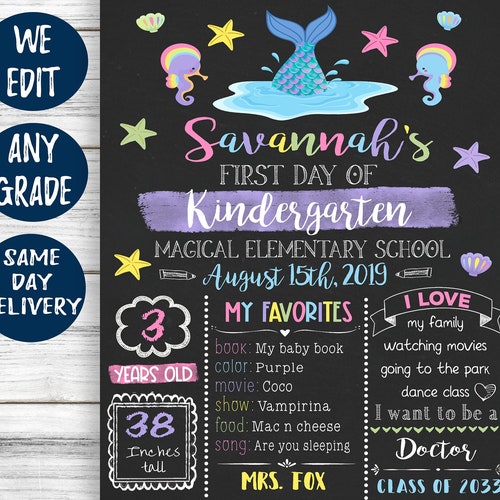 WE
EDIT
ANY
GRADE
SAME
DAY
DELIVERY
Savannah's
FIRST DAY OF
Kindergarten
MAGICAL ELEMENTARY SCHOOL
August 15th, 2019
3
YEARS OLD
38
Inches
tall
MY FAVORITES
book: My baby book
color: Purple
movie: Coco
show: Vampirina
food: Mac n cheese
song: Are you sleeping
MRS. FOX
I LOVE
my family
watching movies
going to the park
dance class
I want to be a
Doctor
CLASS OF 2033